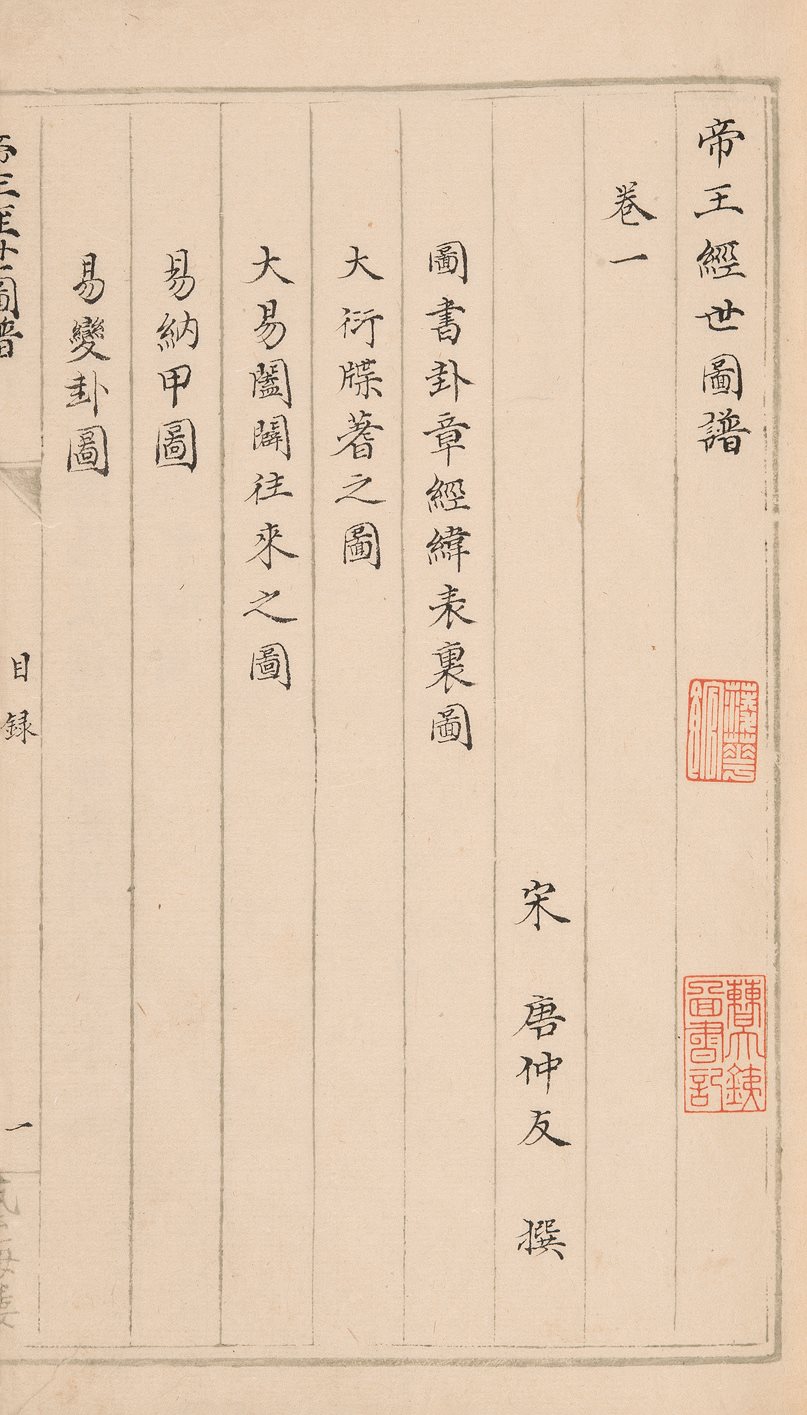 帝王經世圖譜
卷一
宋 唐仲友 撰
圖書卦章經緯表裏圖
大衍牒蓍之圖
大易闔闢往來之圖
易納甲圖
易變卦圖
帝王經世圖譜
目録
一